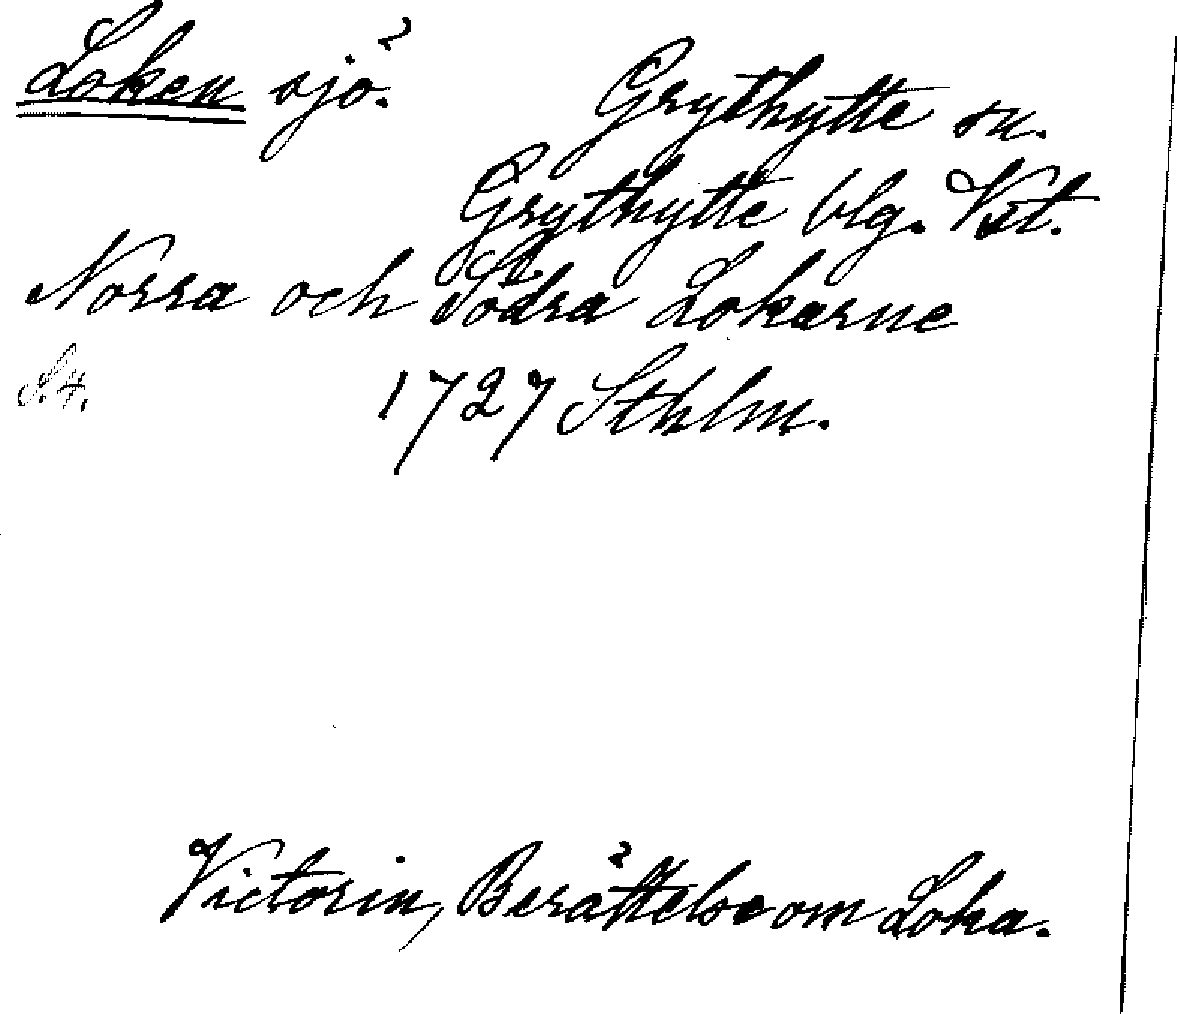 Loken sjö.
Grythytte sn.
Grythytte blg. Vst.
Norra och Södra Lokarne
1727 Sthlm.
Victorin, Berättelse om Loka.